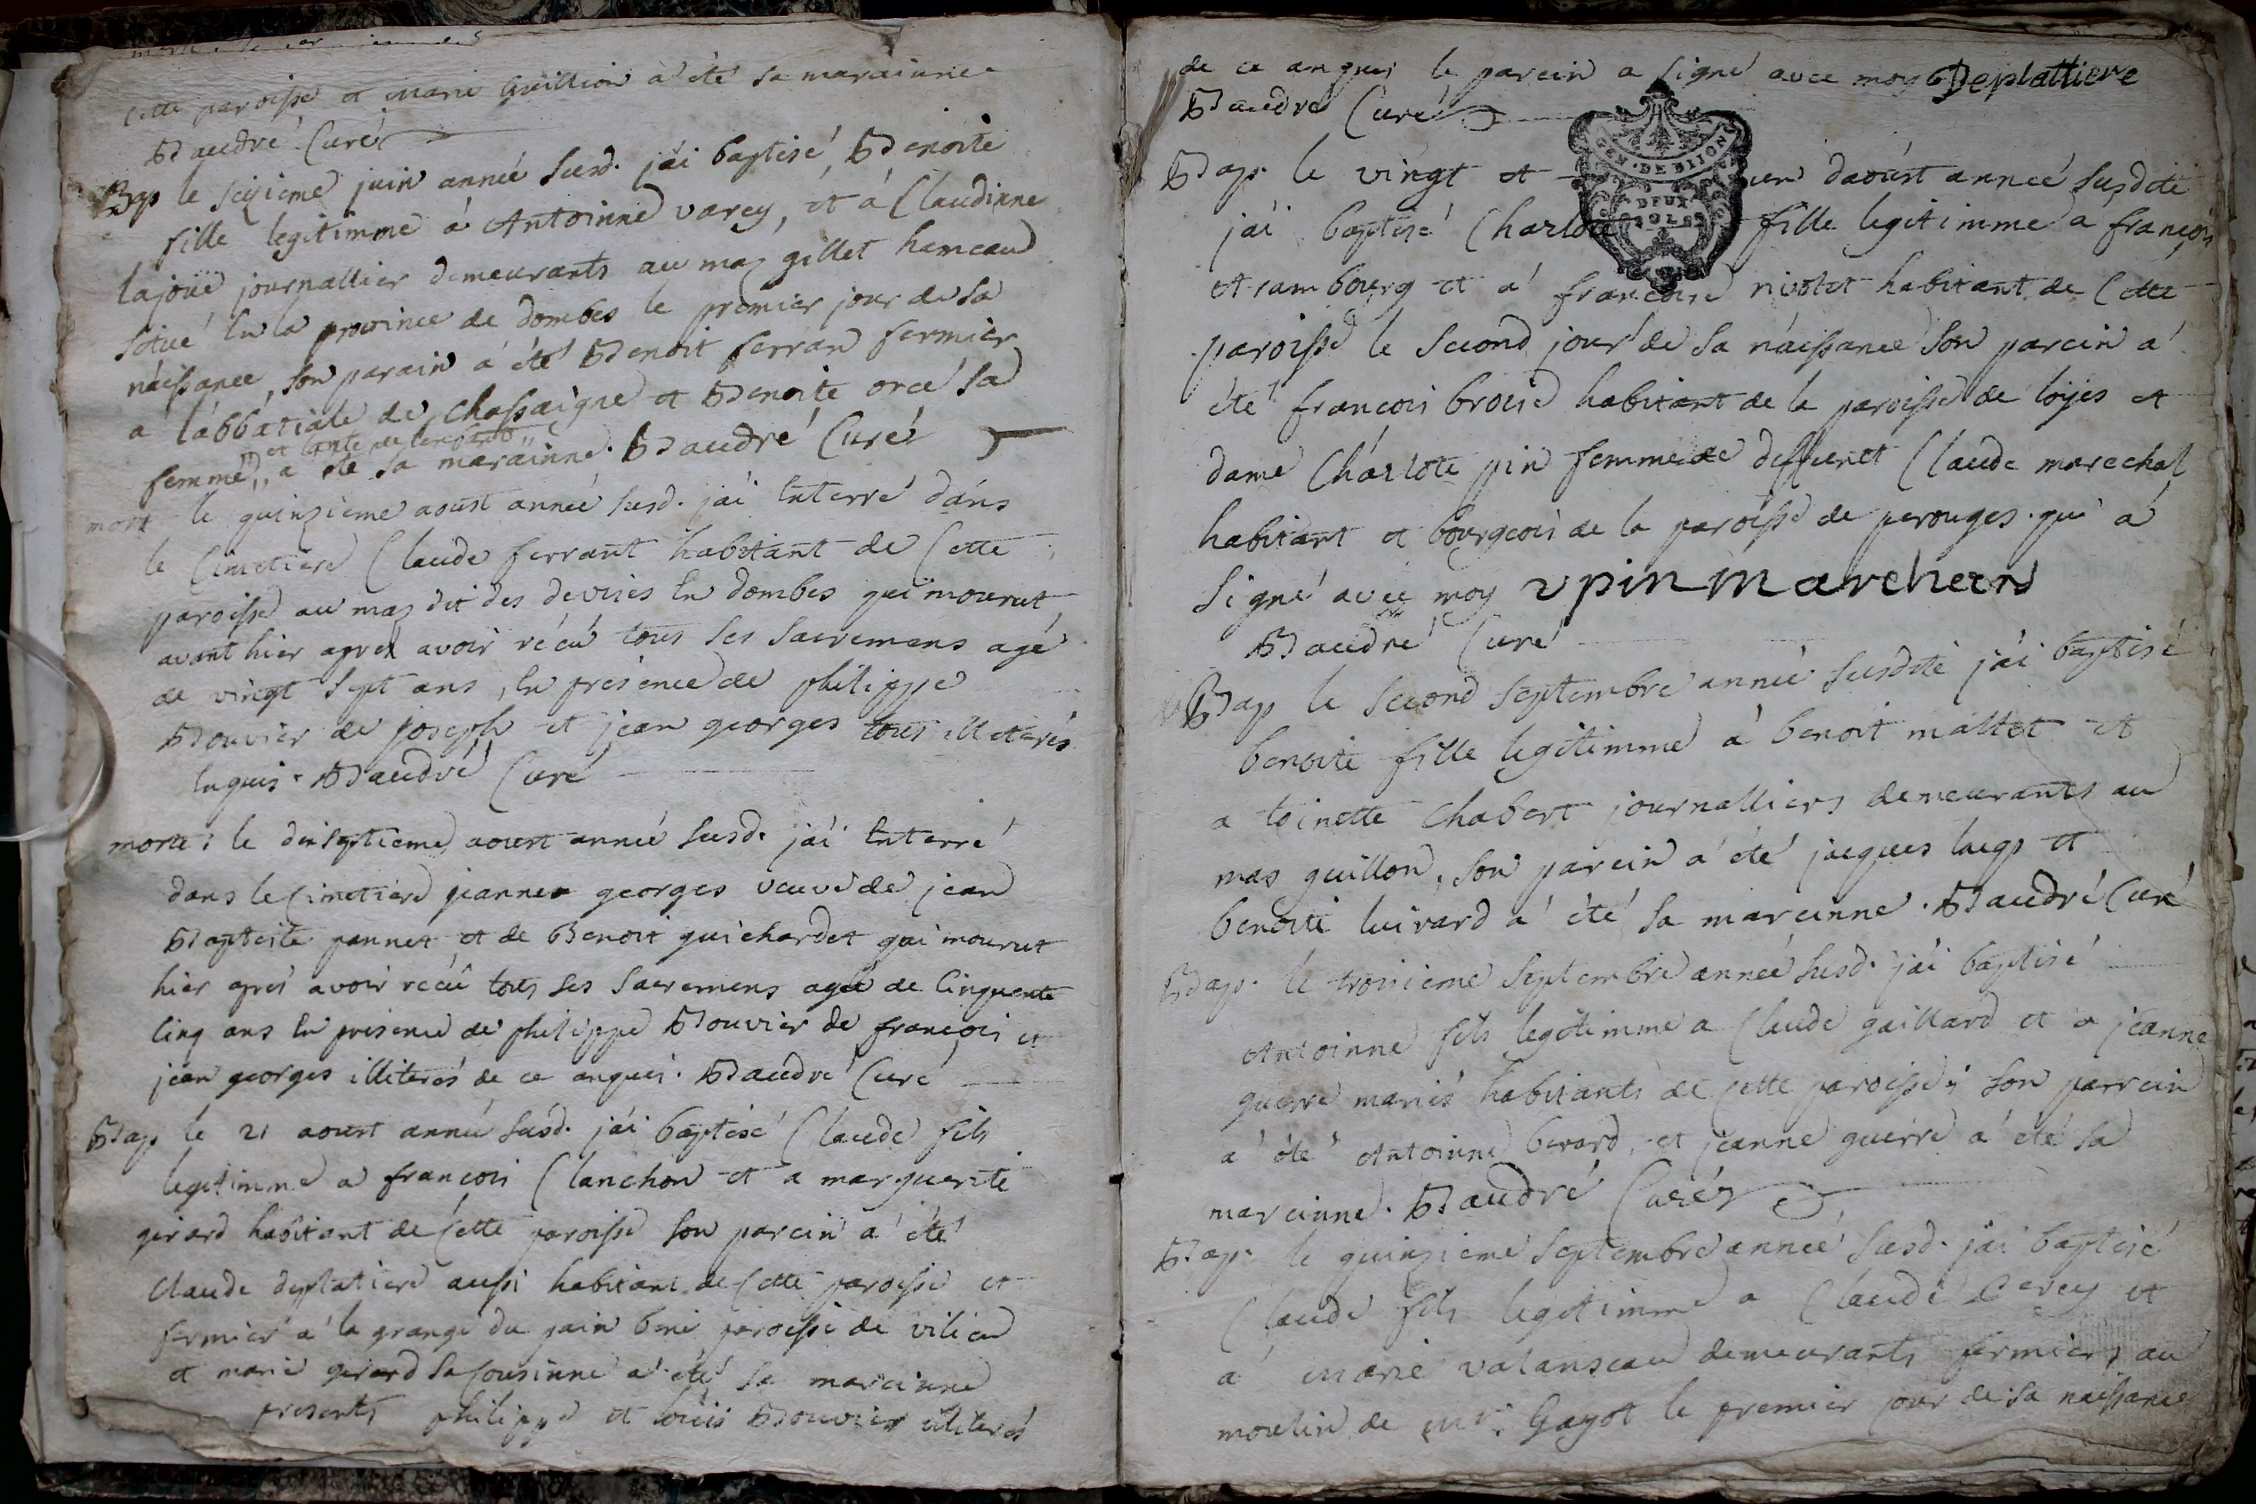 Cette paroisse et marie Guillion à été sa marainne
Baudré Curé
Bap le seizieme juin année susd. j'ai baptisé, Benoite
fille legitimme à Antoinne varey, et à Claudinne
lajoüe journallier demeurants au mas gillet hameau
situé en la province de dombes le premier jour de sa
naissance, son parain à été Benoit ferran fermier
à labbatiale de Chassaigne et Benoite orcé sa
et tante de lenfant
femme,, a été sa marainne. Baudré Curé
mort le quinzieme aoust année susd. j'ai enterré dans
le Cimetiere Claude ferrant habitant de Cette
paroisse au mas dit des devises en dombes qui mourut
avant hier apres avoir récu tous ses sacremens agé
de vingt sept ans, en présence de philippe
Bouvier de joseph et jean georges tous illiterés
enquis. Baudré Curé
morte: le dixseptieme aoust année susd. j'ai enterré
dans le Cimetiere jeanne georges veuve de jean
Baptiste pannet et de Benoit guichardet qui mourut
hier apres avoir récû tous ses sacremens agée de Cinquente
Cinq ans en présence de philippe Bouvier de francois et
jean georges illiterés de ce anquis. Baudré Curé
Bap le 21 aoust année susd. j'ai baptisé Claude fils
legitimme a francois Clanchon et a marguerite
girard habitant de Cette paroisse son parein a été
Claude deplatiere aussi habitant de Cette paroisse et
fermier a la grange du pain beni paroisse de vilieu
et marie gerard sa Cousinne a été sa mareinne
presents philippe et loüis Bouvier illiterés
de ce anquis le parein a signé avec moy Deplattiere
Baudré Curé
GEN. DE DIJON
DEUX
SOLS
Bap. le vingt et daoust année susdite
j'ai baptisé Charlote fille legitimme a françois
et rambourg et a' francoise nivolet habitant de Cette
paroisse le second jour de sa naissance son parein a
été francois broise habitant de la paroisse de loyes et
dame Charlote pin femme de deffunct Claude marechal
habitant et bourgeois de la paroisse de perouges. qui a
signé avec moy vpin Marchecrd
Baudré Curé
Bap le second septembre année susdite j'ai baptisé
benoite fille legitimme à benoit mallet et
a toinette Chabert journalliers demeurants au
mas guillon, son parein a été jacques lueps et
benoite luirard a été sa mareinne. Baudré Curé
Bap. le troisieme septembre année susd. j'ai baptisé
Antoinne fils legitimme a Claude gaillard et a jeanne
guerre mariés habitants de Cette paroisse; son parrein
a été Antoinne berard, et jeanne guerre a été sa
mareinne. Baudré Curé
Bap. le quinzieme septembre année susd. j'ai baptisé
Claude fils legitimme a Claude Cerey et
a marie valanseau demeurants fermiers au
moulin de mr. Gayot le premier jour de sa naissance